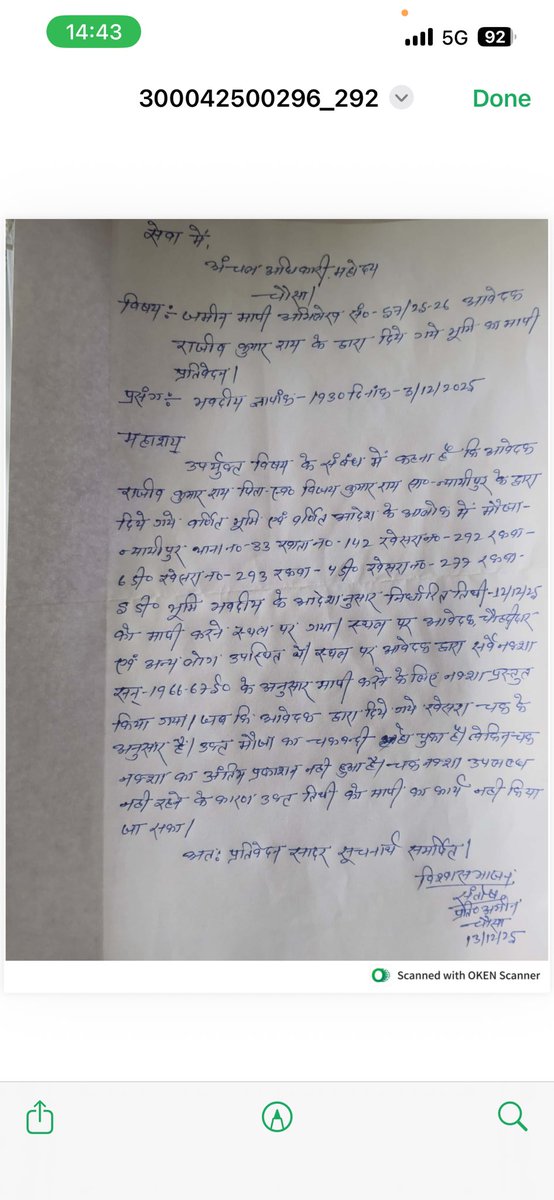 14:43
5G 92
300042500296_292
Done
सेवा में,
अंचल अधिकारी, महोदय
चौसा।
विषय:- जमीन मापी अभिलेख सं०- 57/25-26 आवेदक
राजीव कुमार राय के द्वारा दिये गये भूमि का मापी
प्रतिवेदन।
प्रसंग:- भवदीय ज्ञापांक- 1930 दिनांक- 3/12/2025
महाशय,
उपर्युक्त विषय के संबंध में कहना है कि आवेदक
राजीव कुमार राय पिता- स्व० विजय कुमार राय सा०- न्यायीपुर के द्वारा
दिये गये वर्णित भूमि एवं वर्णित आदेश के आलोक में मौजा-
न्यायीपुर थाना न०- 33 खाता न०- 142 खेसरा न०- 292 रकवा-
6 डी० खेसरा न०- 293 रकवा- 4 डी० खेसरा न०- 277 रकवा-
5 डी० भूमि भवदीय के आदेशानुसार निर्धारित तिथी- 12/12/25
को मापी करने स्थल पर गया। स्थल पर आवेदक चौहद्दीदार
एवं अन्य लोग उपस्थित थे। स्थल पर आवेदक द्वारा सर्वे नक्शा
सन्- 1966-67 ई० के अनुसार मापी करने के लिए नक्शा प्रस्तुत
किया गया। जब कि आवेदक द्वारा दिये गये खेसरा चक के
अनुसार है। उक्त मौजा का चकबन्दी हो चुका है। लेकिन चक
नक्शा का अंतिम प्रकाशन नही हुआ है। चक नक्शा उपलब्ध
नही रहने के कारण उक्त तिथी को मापी का कार्य नही किया
जा सका।
अतः प्रतिवेदन सादर सूचनार्थ समर्पित।
विश्वासभाजन,
संतोष
अमीन
चौसा
13/12/25
Scanned with OKEN Scanner